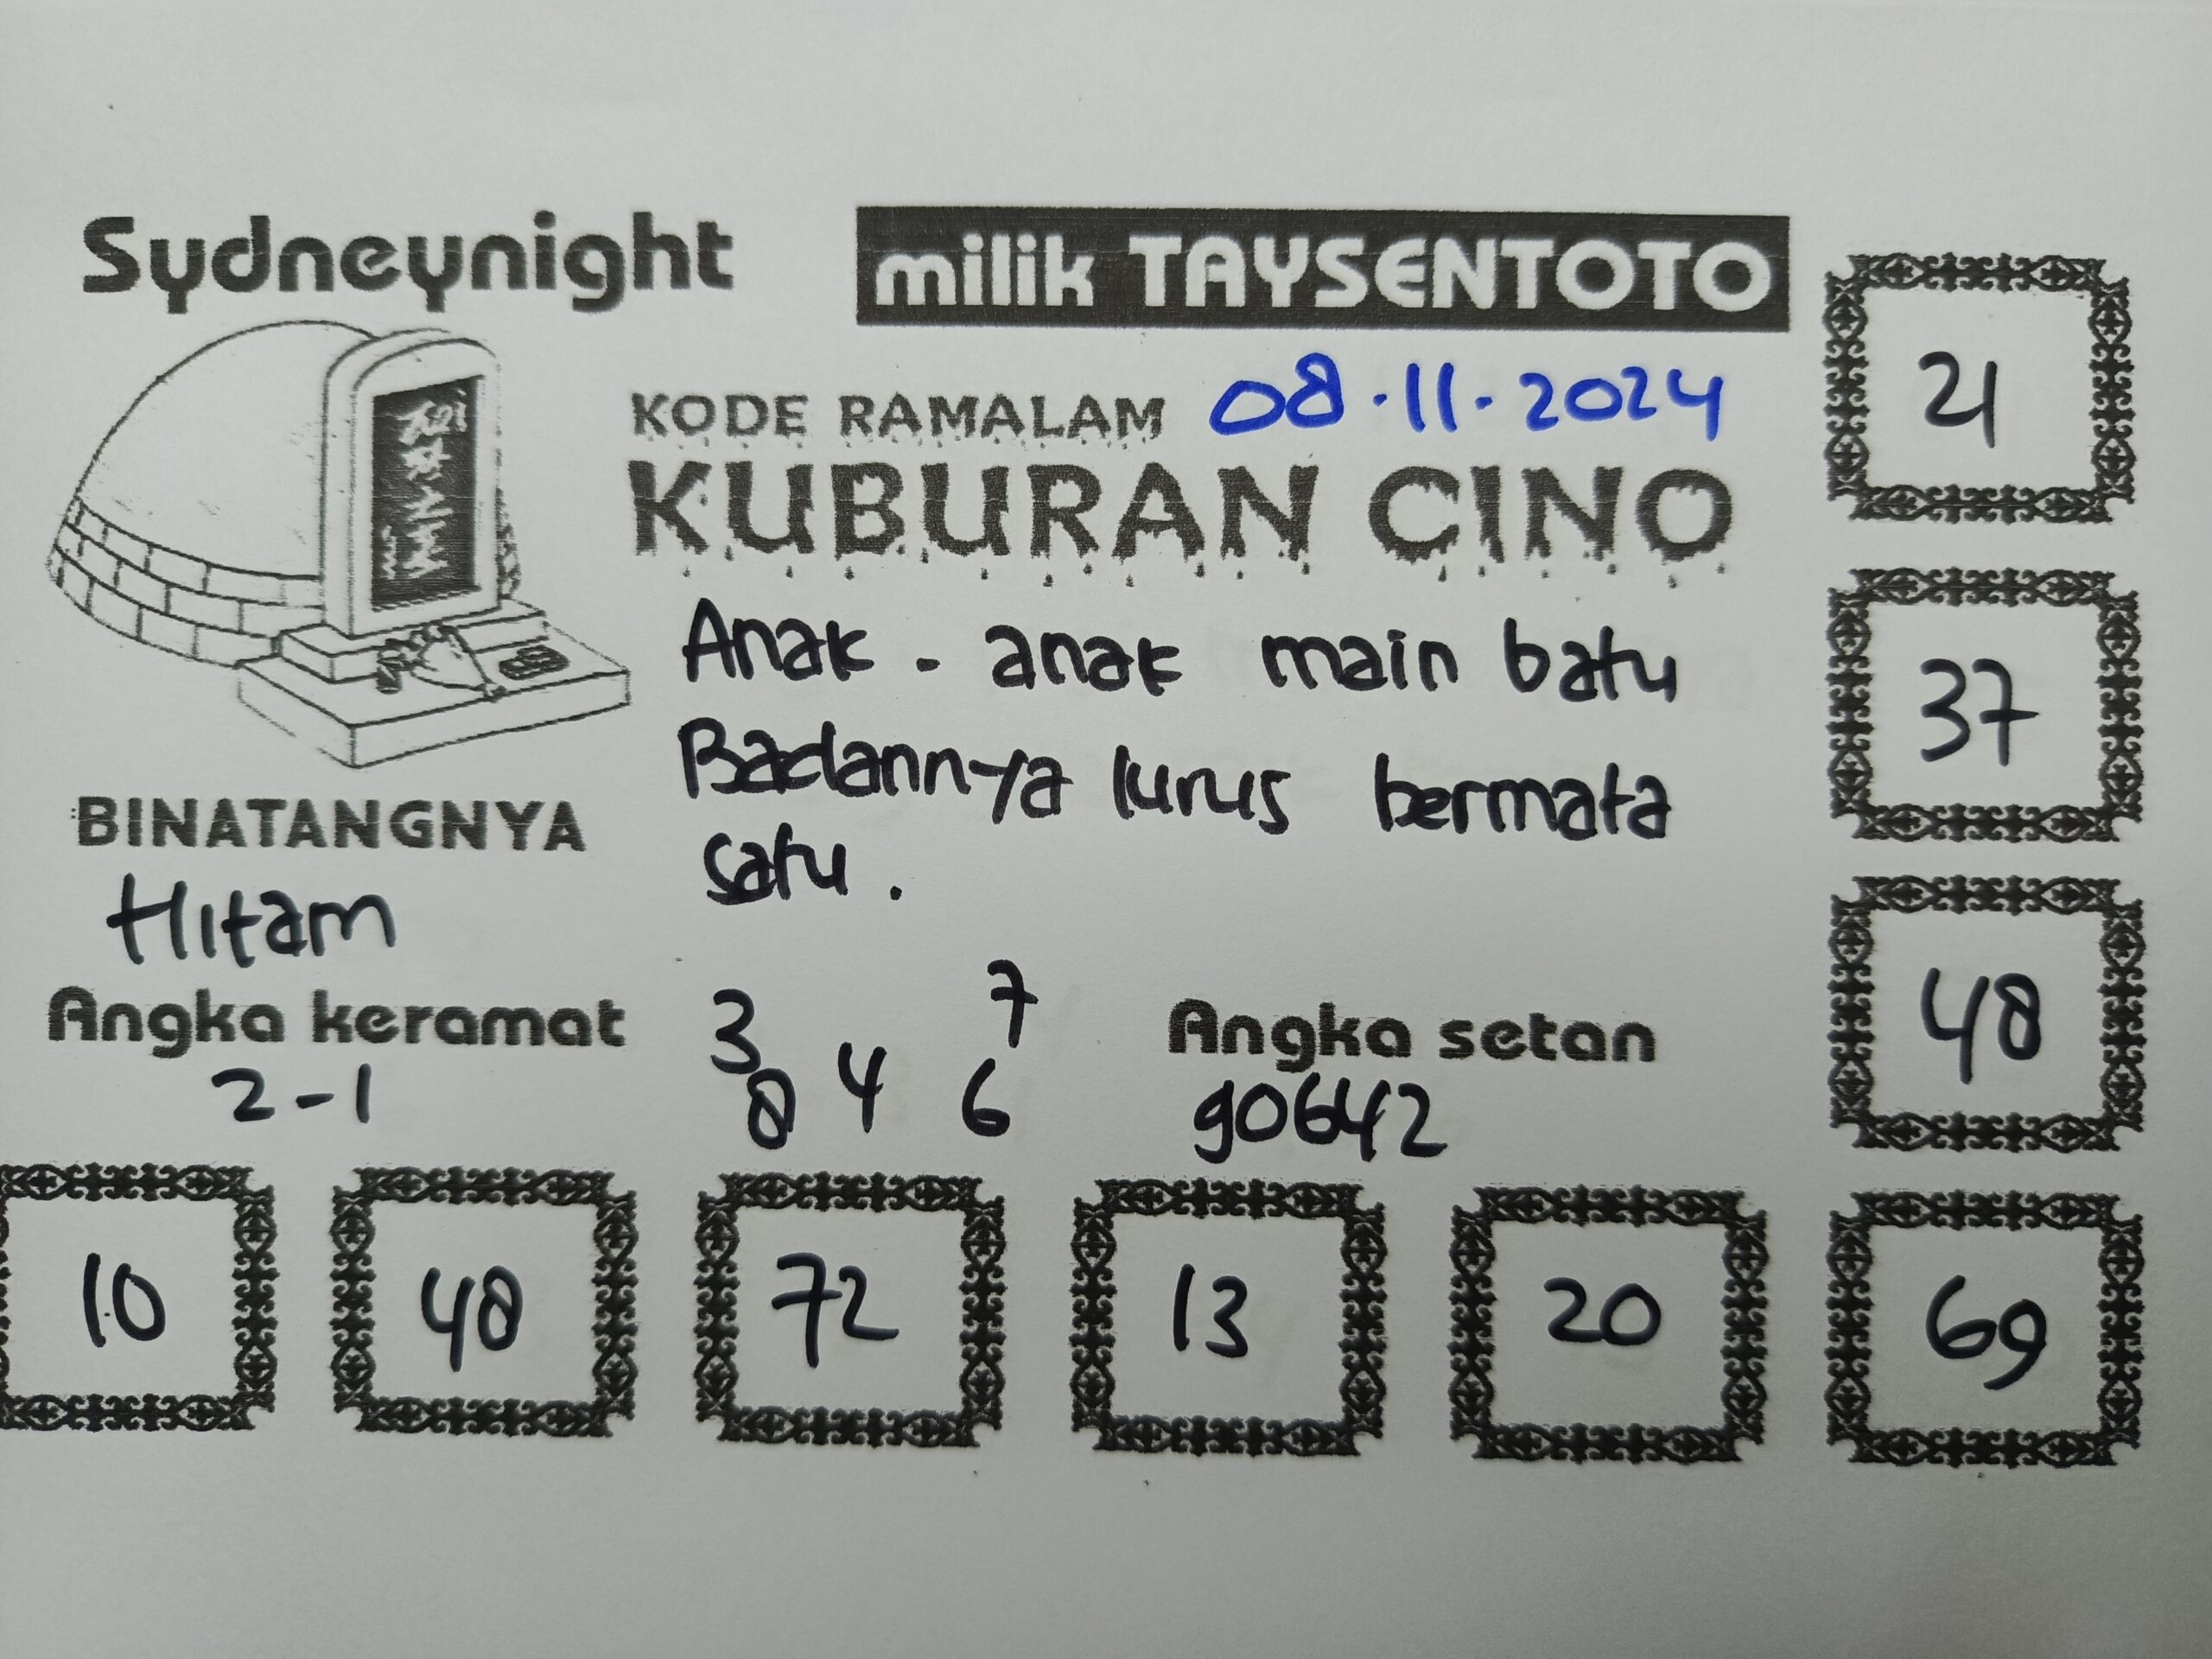 Sydneynight
milik TAYSENTOTO
KODE RAMALAM 08.11.2024
KUBURAN CINO
Anak - anak main batu
Badannya lurus bermata
satu.
BINATANGNYA
Hitam
Angka keramat
2-1
3 7
8 4 6
Angka setan
90642
21
37
48
10 48 72 13 20 69